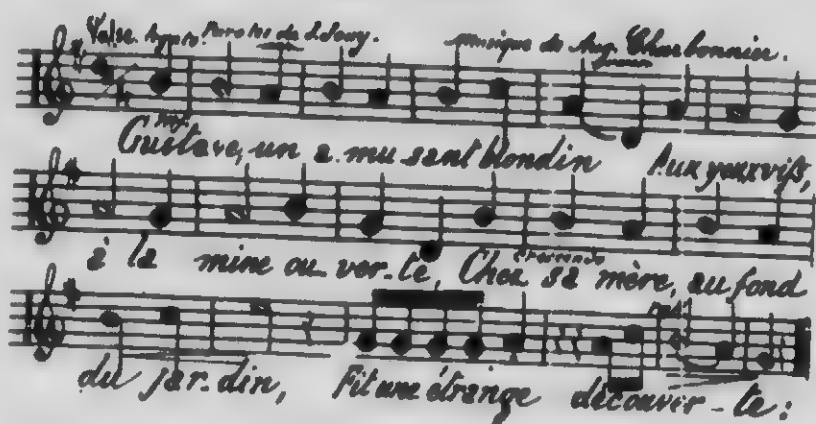 Valse. Paroles de J. Jouy. musique de Aug. Charbonnier.
Gustave, un a-musant blondin Aux yeux vifs,
à la mine ou-ver-te, Chez sa mère, au fond
crescendo
du jar-din, Fit une étrange découver-te: